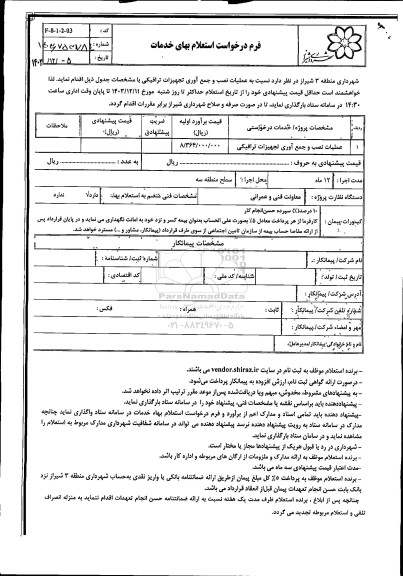 فرم درخواست استعلام بهای خدمات
کد : F-8-1-2-03
شماره :
تاریخ : ۱۴۰۳/۱۲/۰۵
شهرداری منطقه ۳ شیراز در نظر دارد نسبت به عملیات نصب و جمع آوری تجهیزات ترافیکی با مشخصات جدول ذیل اقدام نماید. لذا
خواهشمند است حداقل قیمت پیشنهادی خود را از تاریخ استعلام حداکثر تا روز شنبه مورخ ۱۴۰۳/۱۲/۱۱ تا پایان وقت اداری ساعت
۱۴:۳۰ در سامانه ستاد بارگذاری نمایید، تا در صورت صرفه و صلاح شهرداری شیراز برابر مقررات اقدام گردد.
ردیف مشخصات پروژه/ خدمات درخواستی قیمت برآورد اولیه (ریال) ضریب پیشنهادی قیمت پیشنهادی (ریال) ملاحظات
۱ عملیات نصب و جمع آوری تجهیزات ترافیکی ۸/۳۶۴/۰۰۰/۰۰۰
قیمت پیشنهادی به حروف : ریال به عدد : ریال
مدت اجرا : ۱۲ ماه محل اجرا : سطح منطقه سه
دستگاه نظارت پروژه : معاونت فنی و عمرانی مشخصات فنی منضم به استعلام بها: دارد√ ندارد
کسورات پیمان : ۱۰ درصد(٪) سپرده حسن انجام کار
کارفرما از هر پرداخت معادل ۵٪ بصورت علی الحساب بعنوان بیمه کسر و نزد خود به امانت نگهداری می نماید و در پایان قرارداد پس
از ارائه مفاصا حساب بیمه از سازمان تامین اجتماعی از سوی طرف قرارداد (پیمانکار، مشاور و ...) مسترد خواهد شد.
مشخصات پیمانکار
نام شرکت/ پیمانکار : شماره ثبت/ شناسنامه :
تاریخ ثبت/ تولد: شناسه/ کد ملی : کد اقتصادی :
آدرس شرکت/ پیمانکار:
شماره تلفن شرکت/ پیمانکار : ثابت : همراه : فکس :
مهر و امضاء شرکت/ پیمانکار :
نام و نام خانوادگی پیمانکار/مدیرعامل:
ParsNamadData
۰۲۱-۸۸۳۴۹۶۷۰-۵
- برنده استعلام موظف به ثبت نام در سایت vendor.shiraz.ir می باشند.
- درصورت ارائه گواهی ثبت نام، ارزش افزوده به پیمانکار پرداخت می‌شود.
- به پیشنهادهای مشروط، مخدوش، مبهم ویا دریافت‌شده پس‌از موعد مقرر ترتیب اثر داده نخواهد شد.
- پیشنهاددهنده باید براساس نقشه یا مشخصات فنی، پیشنهاد خود را در سامانه ستاد بارگذاری نماید.
-پیشنهاد دهنده باید تمامی اسناد و مدارک اعم از برآورد و فرم درخواست استعلام بهاء خدمات در سامانه ستاد واگذاری نماید چنانچه
مدارک در سامانه ستاد به رویت پیشنهاد دهنده نرسد پیشنهاد دهنده می تواند در سامانه شفافیت شهرداری مدارک مربوط به استعلام را
مشاهده نماید و در سامان ستاد بارگذاری نماید.
- شهرداری در رد یا قبول هریک از پیشنهادها مجاز یا مختار است.
- برنده استعلام موظف به ارائه مدارک و ملزومات از ارگان های مربوطه و اداره کار باشد.
-مدت اعتبار قیمت پیشنهادی سه ماه می باشد.
- برنده استعلام موظف به پرداخت ۵٪ کل مبلغ پیمان ازطریق ارائه ضمانتنامه بانکی یا واریز نقدی به‌حساب شهرداری منطقه ۳ شیراز نزد
بانک بابت حسن انجام تعهدات پیمان قبل‌از انعقاد قرارداد می باشد.
چنانچه پس از ابلاغ ، برنده استعلام ظرف مدت یک هفته نسبت به ارائه ضمانتنامه حسن انجام تعهدات اقدام ننماید به منزله انصراف
تلقی و استعلام مربوطه تجدید می گردد.